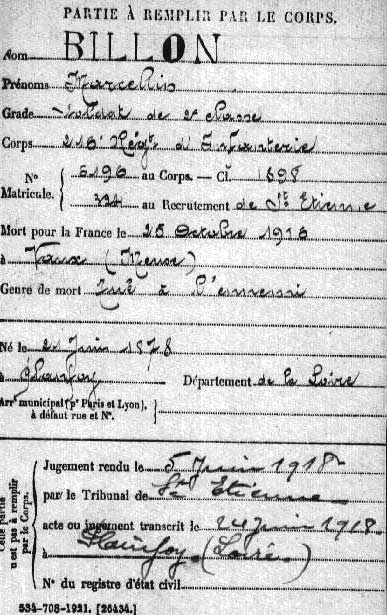 PARTIE À REMPLIR PAR LE CORPS.
Nom BILLON
Prénoms Marcellin
Grade Soldat de 2e classe
Corps 216e Régt d'Infanterie
N° Matricule. 5196 au Corps. — Cl. 1898
324 au Recrutement de St Etienne
Mort pour la France le 25 Octobre 1916
à Vaux (Meuse)
Genre de mort Tué à l'ennemi
Né le 21 Juin 1878
à Planfoy Département de la Loire
Arrt municipal (pr Paris et Lyon), à défaut rue et N°.
Cette partie n'est pas à remplir par le Corps.
Jugement rendu le 5 Juin 1918
par le Tribunal de St Etienne
acte ou jugement transcrit le 24 juin 1918
à Planfoy (Loire)
N° du registre d'état civil
534-708-1921. [26434.]